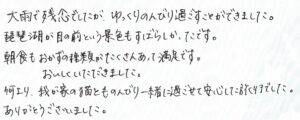 大雨で残念でしたが、ゆっくりのんびり過すことができました。
琵琶湖が目の前という景色もすばらしかったです。
朝食もおかずの種類がたくさんあって満足です。
おいしくいただきました。
何より、我が家の猫とものんびり一緒に過ごせて安心した旅行でした。
ありがとうございました。